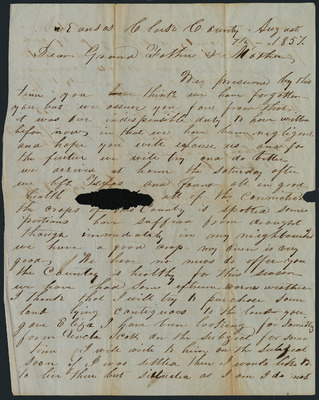 Kansas County August
7th 1857.
Dear Grand Father & Mother
We presume by this
time you have think we have forgotten
you but we assure you far from that.
it was our indispensible duty to have written
before now, in that we have been negligent
and hope you will excuse us and for
the future we will try and do better
we arrived at home the saturday after
we left Texas and found all in good
health all of the connection
the crops of this County is spotted some
portions have suffered from drought
though immediately in my neighbourhood
we have a good crop my own is very
good. We have no news to offer you
the County is healthy for this season
we have had some extreme warm weather
I think that I will try to purchase some
land lying contiguous to the land you
gave Eliza I have been looking for some
from Uncle Scott on the subject for some
time I will write to him on the subject
soon if I was settled there I would like to
to live there but situated as I am I do not